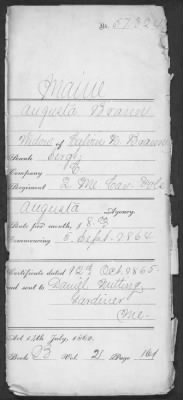 No. 57,824
Maine
Augusta Braun
Widow of Calvin D. Braun
Rank Sergt.
Company C
Regiment 2 Me Cav. Vols
Augusta Agency.
Rate per month, $8.
Commencing 5. Sept. 1864
Certificate dated 12 Oct. 1865
and sent to Daniel Nutting,
Gardiner
Me.
Act 14th July, 1862.
Book B Vol. 21 Page 161